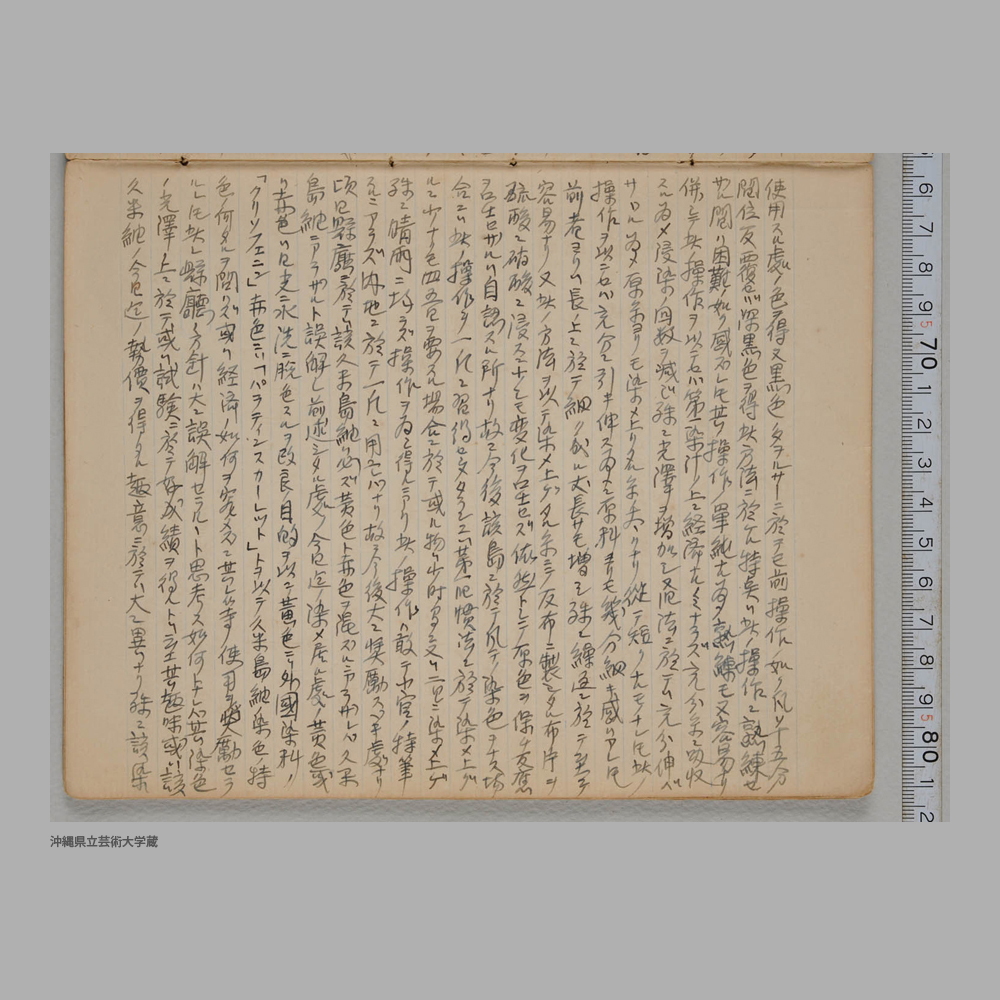 使用スル處ノ色ヲ得又黒色タラシムルニ於テモ前操作ノ如ク凡ソ十五分
間位反覆シ深黒色ヲ得此方法ニ於ケル特長ハ此ノ操作ニ熟練セ
サル間ハ困難ノ如ク感スレ共操作ノ單純ナル為メ熟練モ又容易ナリ
併シ此操作ヲ以テセハ第一染汁ノ上ニ経済ナルノミナラズ充分糸ニ吸収
スル為メ浸染ノ回数ヲ減シ殊ニ光澤ヲ増加シ又従法ニ於テハ充分伸ベ
サル為メ原糸ヨリモ染メ上リタル糸 縮ナリ従テ短クナルモノナレ共此
操作ヲ以テセハ充分引キ伸ス為メニ原料ヨリモ幾分細キ感アレ共
前者ヨリハ長上ニ於テ細ク 丈長サモ増シ殊ニ練返ニ於テ至テ
容易ナリ又此ノ方法ヲ以テ染メ上ゲタル糸ニテ反布ニ製シタル布片ヲ
硫酸ニ硝酸ニ浸スナレモ変化ヲ呈セズ依然トシテ原色ヲ保チ
呈セザルハ自認スル所ナリ故ニ今後該島ニ於テ凡テ染色ヲナス場
合ニハ此操作ヲ一凡ニ習得 第一旧慣法ニ於テ染メ上ゲ
ルニ少ナキモ四五日ヲ要スル場合ニ於テ或ル物ハ少時間 ニ染メ上ゲ
殊ニ晴雨ニ拘ラズ操作ヲ為シ得ルニヨリ此操作ハ敢テ 特筆
スルニアラズ内地ニ於テ一凡ニ用 故ニ今後大ニ奨励スベキ處ナリ
頃日縣廳ニ於テハ該久米島紬ハ必ズ黄色ト赤色ヲ混スルニアラザレバ久米
島紬ニアラザルト誤解シ前述シタル處ノ今日迄ノ染メ居ル處ノ黄色或
ハ赤色ハ日光ニ水洗ニ脱色スルヲ改良ノ目的ヲ以テ黄色ニハ外國染料ノ
「クリソフエニン」赤色ニハ「パラテインスカーレツト」トヲ以テ久米島紬染色ノ特
色何タルヲ問ハズ或ハ経済ノ如何ヲ究メズニ 使用奨励セラ
ルレ共此レ縣廳ノ方針ハ大ニ誤解セラルヽト思考ス如何トナレバ其染色
ノ光澤ノ上ニ於テ或ハ試験ニ於テ好成績ヲ得ルト 其趣味或ハ該
久米紬ノ今日迄ノ勢價ヲ得タル趣意ニ於テハ大ニ異ナリ殊ニ該染
沖縄県立芸術大学蔵